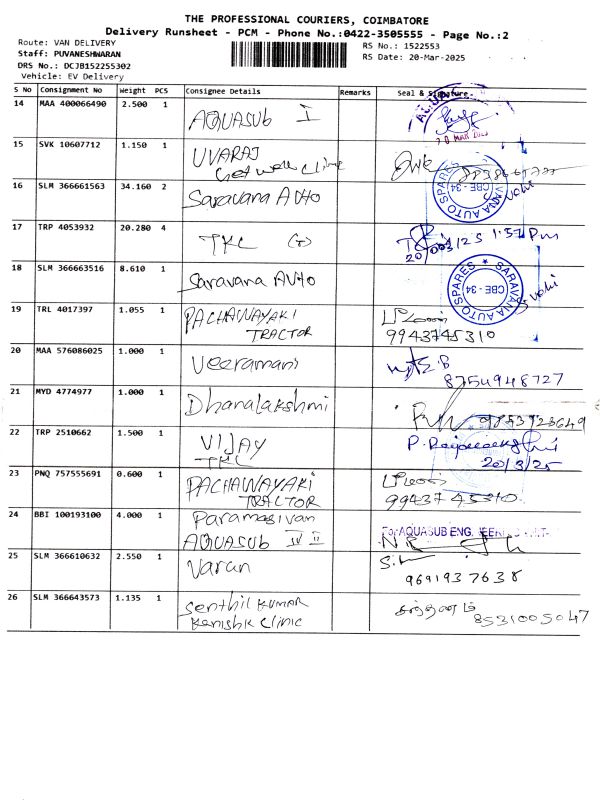 THE PROFESSIONAL COURIERS, COIMBATORE
Delivery Runsheet - PCM - Phone No.:0422-3505555 - Page No.:2
Route: VAN DELIVERY
RS No.: 1522553
Staff: PUVANESHWARAN
RS Date: 20-Mar-2025
DRS No.: DCJB152255302
Vehicle: EV Delivery
S No Consignment No Weight PCS Consignee Details Remarks Seal & Signature
14 MAA 400066490 2.500 1 AQUASUB I
15 SVK 10607712 1.150 1 UVARAJ
Getwell Clinic
16 SLM 366661563 34.160 2 Saravana AUto
SARAVANA AUTO SPARES CBE - 34
17 TRP 4053932 20.280 4 TKC (T)
20/003/25 1.57 Pm
18 SLM 366663516 8.610 1 Saravana AUto
SARAVANA AUTO SPARES CBE - 34
19 TRL 4017397 1.055 1 PACHAWAYAKI
TRACTOR 9943745310
20 MAA 576086025 1.000 1 Veeramani
8754948727
21 MYD 4774977 1.000 1 Dhanalakshmi
22 TRP 2510662 1.500 1 VIJAY
TKC 20/3/25
23 PNQ 757555691 0.600 1 PACHAWAYAKI
TRACTOR 9943745310
24 BBI 100193100 4.000 1 Paramasivan
AQUASUB IV II
For AQUASUB ENG
25 SLM 366610632 2.550 1 Varun
9691937638
26 SLM 366643573 1.135 1 Senthil KUMAR
Kanishk Clinic 8531005047